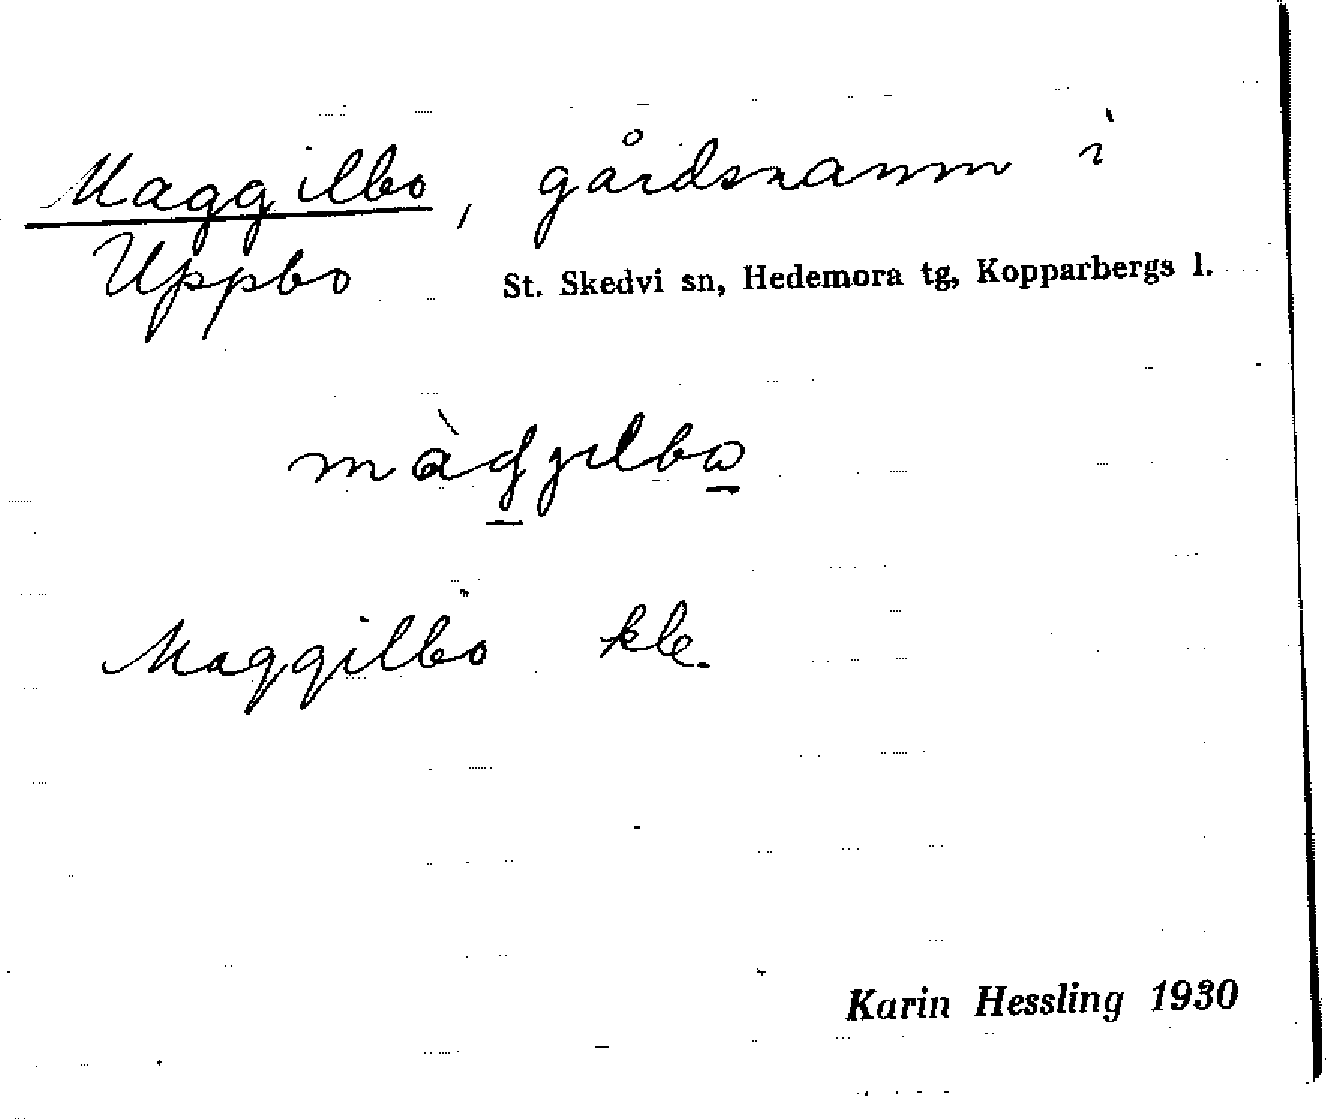 Maggilbo, gårdsnamn i
Uppbo St. Skedvi sn, Hedemora tg, Kopparbergs l.
màggilbo
Maggilbo kle.
Karin Hessling 1930